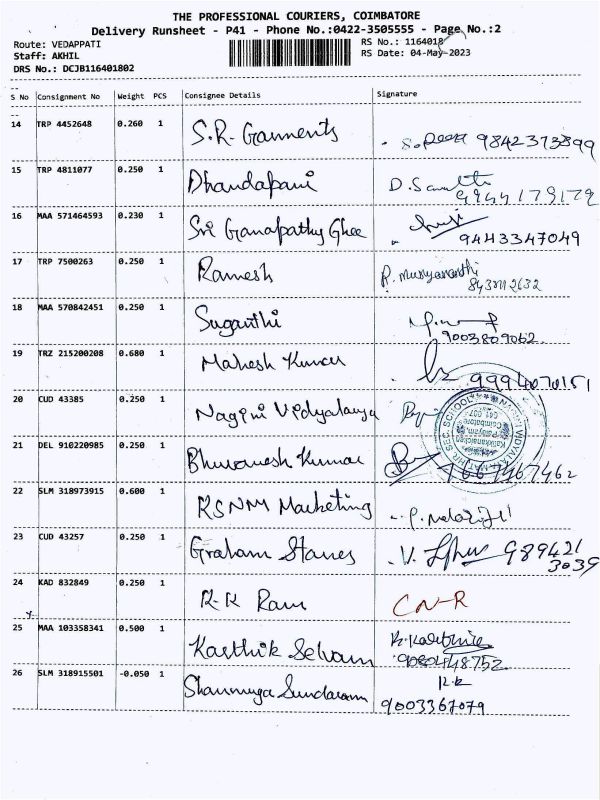 THE PROFESSIONAL COURIERS, COIMBATORE
Delivery Runsheet - P41 - Phone No.:0422-3505555 - Page No.:2
Route: VEDAPPATI
RS No.: 1164018
Staff: AKHIL
RS Date: 04-May-2023
DRS No.: DCJB116401802
S No Consignment No Weight PCS Consignee Details Signature
14 TRP 4452648 0.260 1 S.R. Garments 9842373899
15 TRP 4811077 0.250 1 Dhandapani D.
9944179179
16 MAA 571464593 0.230 1 Sri Ganapathy Ghee
9443347049
17 TRP 7500263 0.250 1 Ramesh R.
18 MAA 570842451 0.250 1 Suganthi
9003809062
19 TRZ 215200208 0.680 1 Mahesh Kumar 9994070151
20 CUD 43385 0.250 1 Nagini Vidyalaya
21 DEL 910220985 0.250 1 Bhuvanesh Kumar
22 SLM 318973915 0.600 1 RSNM Marketing
23 CUD 43257 0.250 1 Graham Stanes V. 989421
3039
24 KAD 832849 0.250 1 R.R Ram CN-R
25 MAA 103358341 0.500 1 Karthik Selvam
26 SLM 318915501 -0.050 1 Shanmuga Sundaram
9003367079